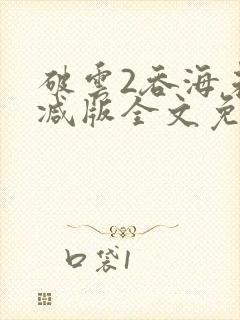 破雲2吞海未
减版全文免
口袋1